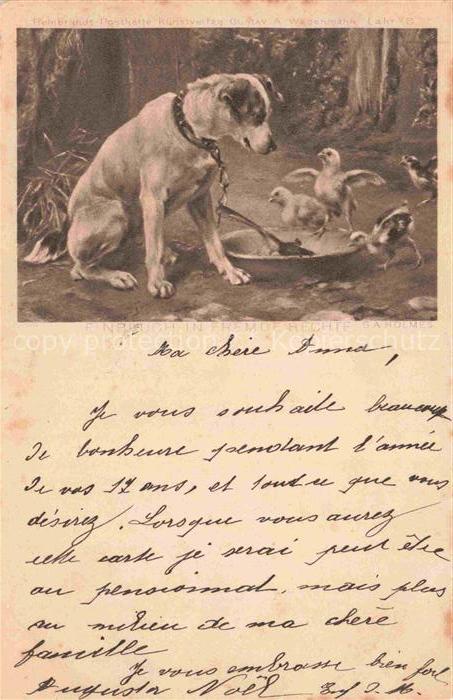 Rembrandt-Postkarte Kunstverlag Gustav A. Wagenmann, Lahr i/B.
EINBRUCH IN FREMDE RECHTE. G.A. HOLMES
copy protection by Korpierschutz
Ma chère Anna,
Je vous souhaite beaucoup
de bonheure pendant l'année
de vos 17 ans, et tout ce que vous
désirez. Lorsque vous aurez
cette carte je serai peut être
au pensionnat, mais plus
au milieu de ma chère
famille
Je vous embrasse bien fort
Augusta Noël